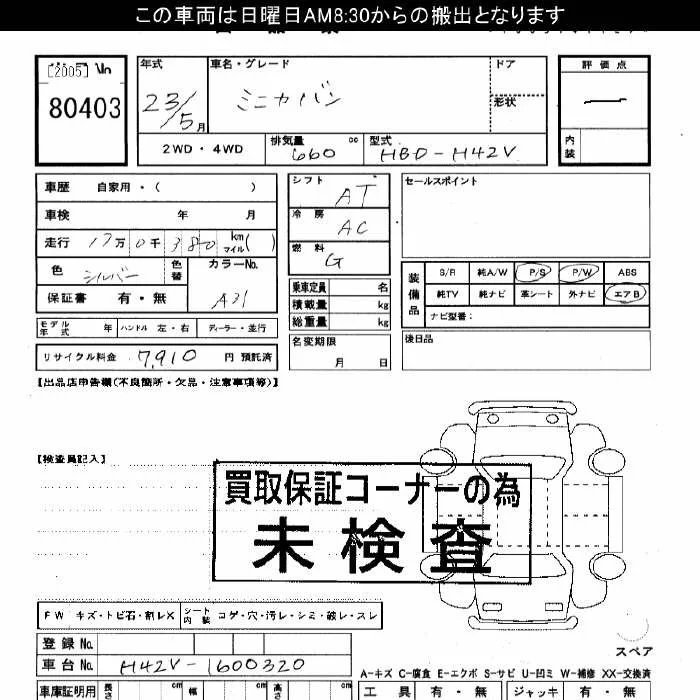 この車両は日曜日AM8:30からの搬出となります
[2005]
80403
年式
23/5月
車名・グレード
ミニカバン
ドア
形状
評価点
―
内装
2WD・4WD
排気量 660 cc
型式 HBD-H42V
車歴 自家用・( )
車検 年 月
走行 17万0千380 km マイル( )
色 シルバー 色替
カラーNo. A31
保証書 有・無
モデル年式 年 ハンドル 左・右 ディーラー・並行
リサイクル料金 7,910 円 預託済
シフト AT
冷房 AC
燃料 G
乗車定員 名
積載量 kg
総重量 kg
名変期限
月 日
セールスポイント
装備品
S/R 純A/W P/S P/W ABS
純TV 純ナビ 革シート 外ナビ エアB
ナビ型番:
後日品
【出品店申告欄(不良箇所・欠品・注意事項等)】
【検査員記入】
買取保証コーナーの為
未検査
FW キズ・トビ石・割レX シート内装 コゲ・穴・汚レ・シミ・破レ・スレ
登録No.
車台No. H42V-1600320
スペア
A-キズ C-腐食 E-エクボ S-サビ U-凹ミ W-補修 XX-交換済
車庫証明用 長さ cm 幅 cm 高さ cm
工具 有・無 ジャッキ 有・無